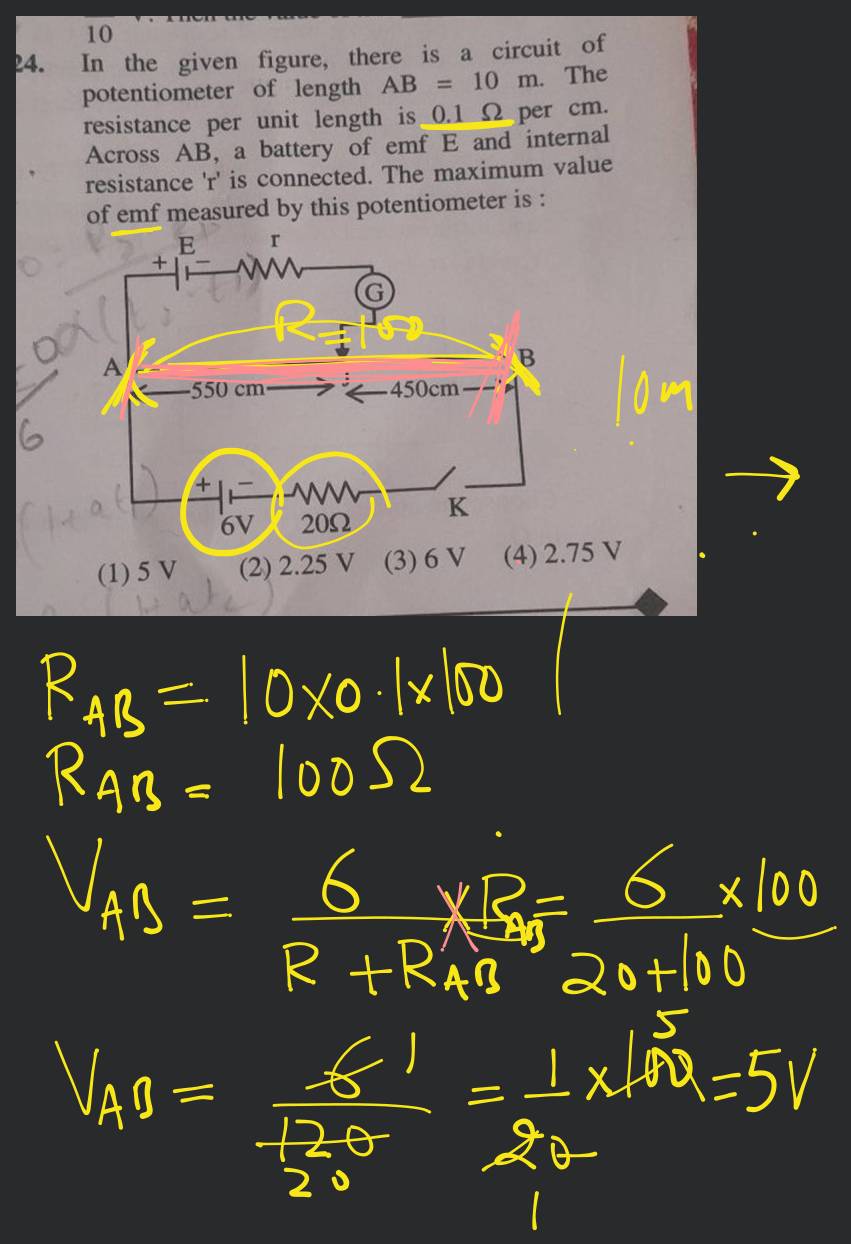 10
24. In the given figure, there is a circuit of
potentiometer of length AB = 10 m. The
resistance per unit length is 0.1 Ω per cm.
Across AB, a battery of emf E and internal
resistance 'r' is connected. The maximum value
of emf measured by this potentiometer is :
E r
+ −
G
R=100
A B
550 cm 450cm
10m
+ −
6V 20Ω K
(1) 5 V (2) 2.25 V (3) 6 V (4) 2.75 V
R_AB = 10×0.1×100
R_AB = 100Ω
V_AB = 6/(R + R_AB) × R_AB = 6/(20+100) ×100
V_AB = 6 1/120 20 = 1/20 1 ×100 5 = 5V